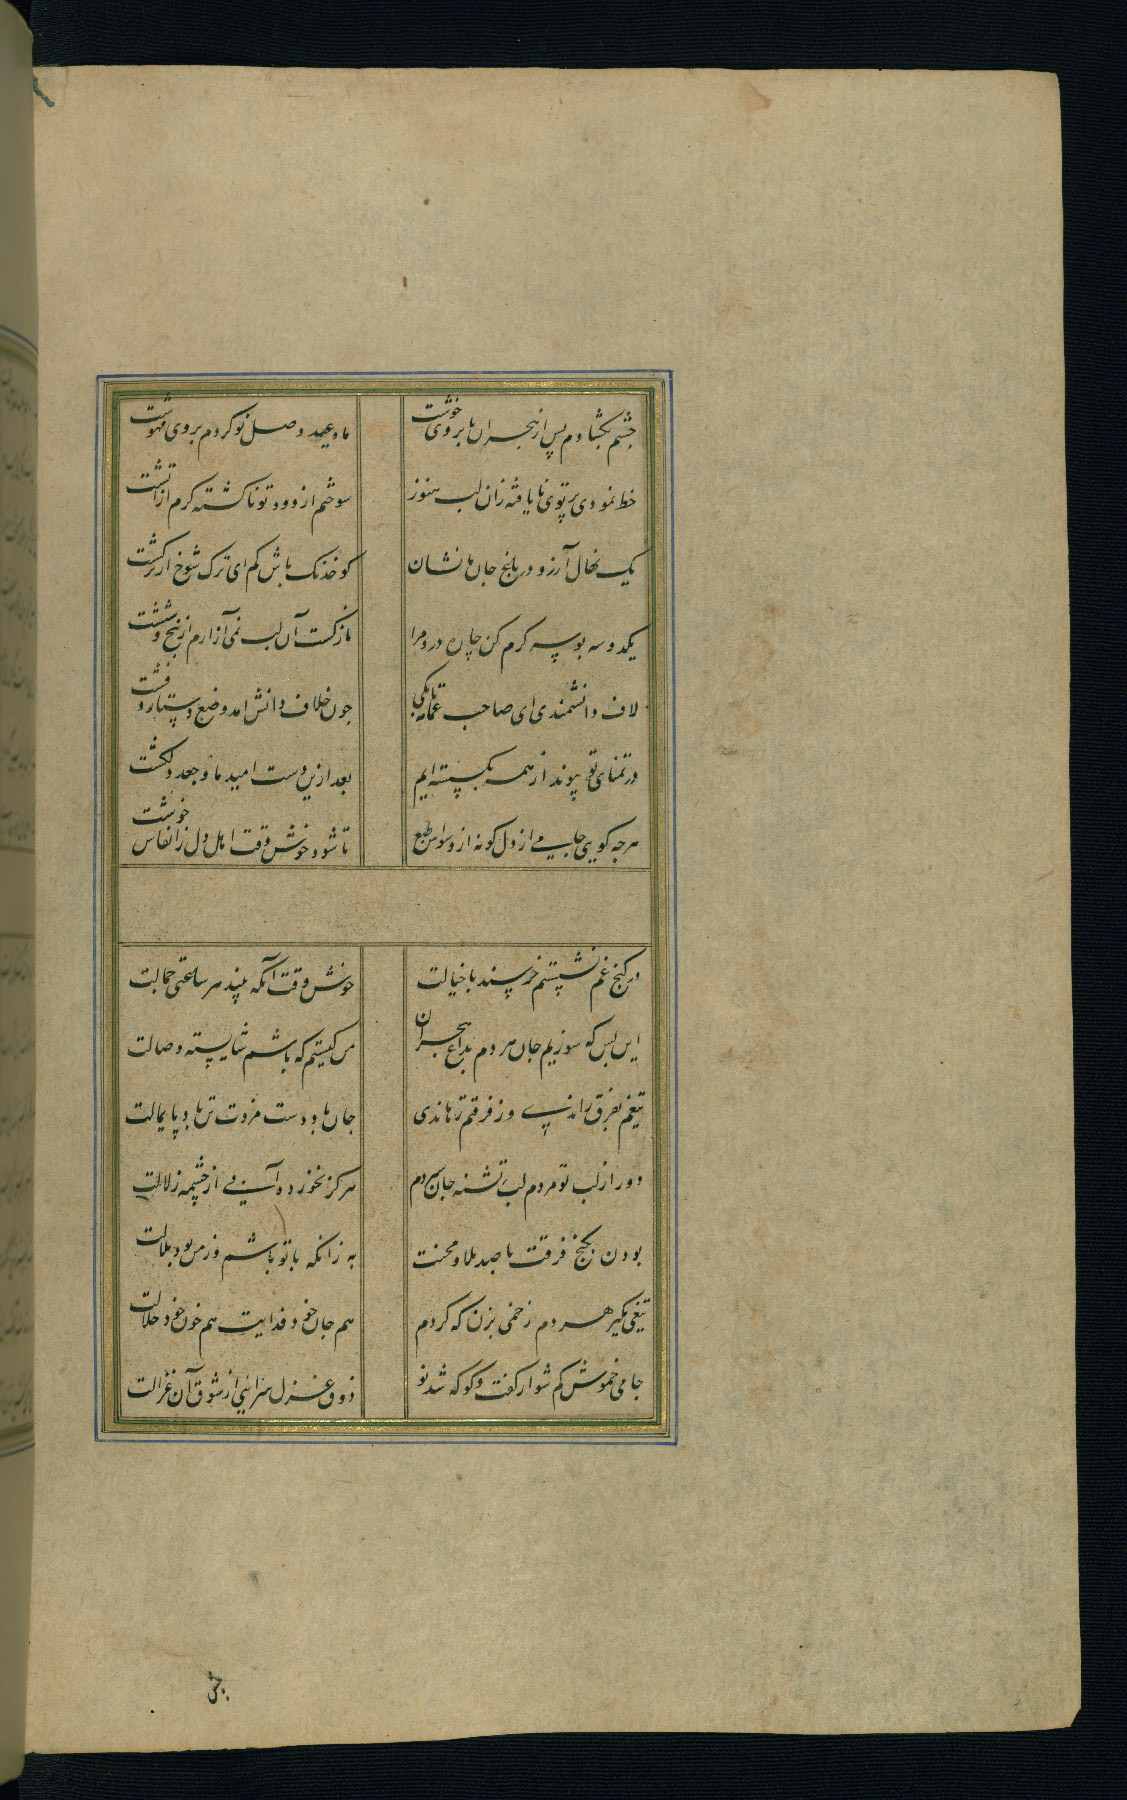 چشم بکشادم پس از هجران بروی خوشت ماه عید وصل تو کردم بروی مهوشت
خط نمودی پرتوی نایافته زان لب هنوز سوختم از دود تو ناکشته کرم از آتشت
یک نهال آرزو در باغ جانها نشان کو خدنک باش کم ای ترک شوخ از ترکشت
یکدو سه بوسه کرم کن چاره درد مرا نازکست آن لب نمی آزارم از پنج و ششت
لاف دانشمندی ای صاحب عمامه تا بکی چون خلاف دانش امد وضع دستار و فشت
در تمنای تو پیوند از همه بکسسته ایم بعد ازین دست امید ما و جعد دلکشت
هرچه کویی جامی از دل کو نه از وسواس طبع تا شود خوش وقت اهل دل ز انفاس خوشت
در کنج غم نشستم خرسند با خیالت خوش وقت آنکه بیند هر ساعتی جمالت
این بس که سوزیم جان هر دم بداغ هجران من کیستم که باشم شایسته وصالت
تیغم بفرق راندی وز فرقتم رهاندی جانها و دست مزدت سرها و پایمالت
دور از لب تو مردم لب تشنه جان سپردم هرکز نخورده آبی از چشمه زلالت
بودن بکنج فرقت با صد بلا و محنت به زانکه با تو باشم وز من بود ملالت
تیغی بکیر هر دم زخمی بزن که کردم هم جان خود فدایت هم خون خود حلالت
جامی خموش کم شو از کفت و کو که شد نو ذوق غزل سرائی از شوق آن غزالت